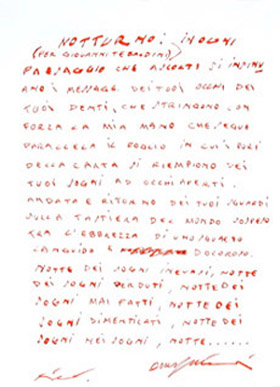 NOTTURNO: INOGNI
(PER GIOVANNI TEBALDINI)
PAESAGGIO CHE ASCOLTI SI INSINU
ANO I MESSAGGI DEI TUOI OCCHI DEI
TUOI DENTI, CHE STRINGONO CON
FORZA LA MIA MANO CHE SEGUE
PARALLELA IL FOGLIO IN CUI I PORI
DELLA CARTA SI RIEMPIONO DEI
TUOI SOGNI AD OCCHI APERTI.
ANDATA E RITORNO DEI TUOI SGUARDI
SULLA TASTIERA DEL MONDO SOSPESO
TRA L'EBBREZZA DI UNO SGUARDO
LANGUIDO E DOLOROSO.
NOTTE DEI SOGNI INEVASI, NOTTE
DEI SOGNI PERDUTI, NOTTE DEI
SOGNI MAI FATTI, NOTTE DEI
SOGNI DIMENTICATI, NOTTE DEI
SOGNI NEI SOGNI, NOTTE......